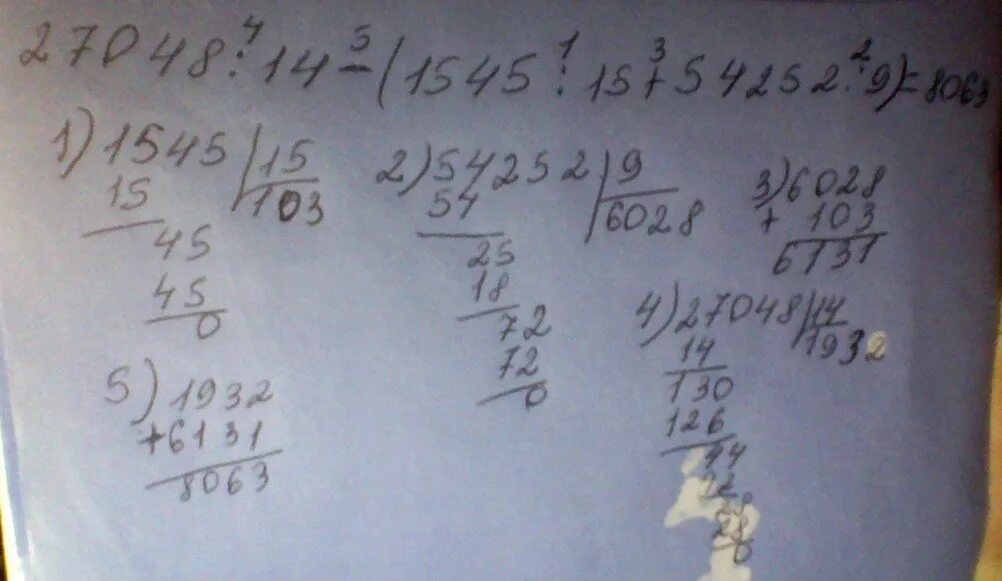 27048 : 14 - (1545 : 15 + 54252 : 9) = 8063
4 5 1 3 2
1) 1545 | 15
15 103
45
45
0
2) 54252 | 9
54 6028
25
18
72
72
0
3) 6028
+ 103
6131
4) 27048 | 14
14 1932
130
126
44
42
28
28
0
5) 1932
+6131
8063